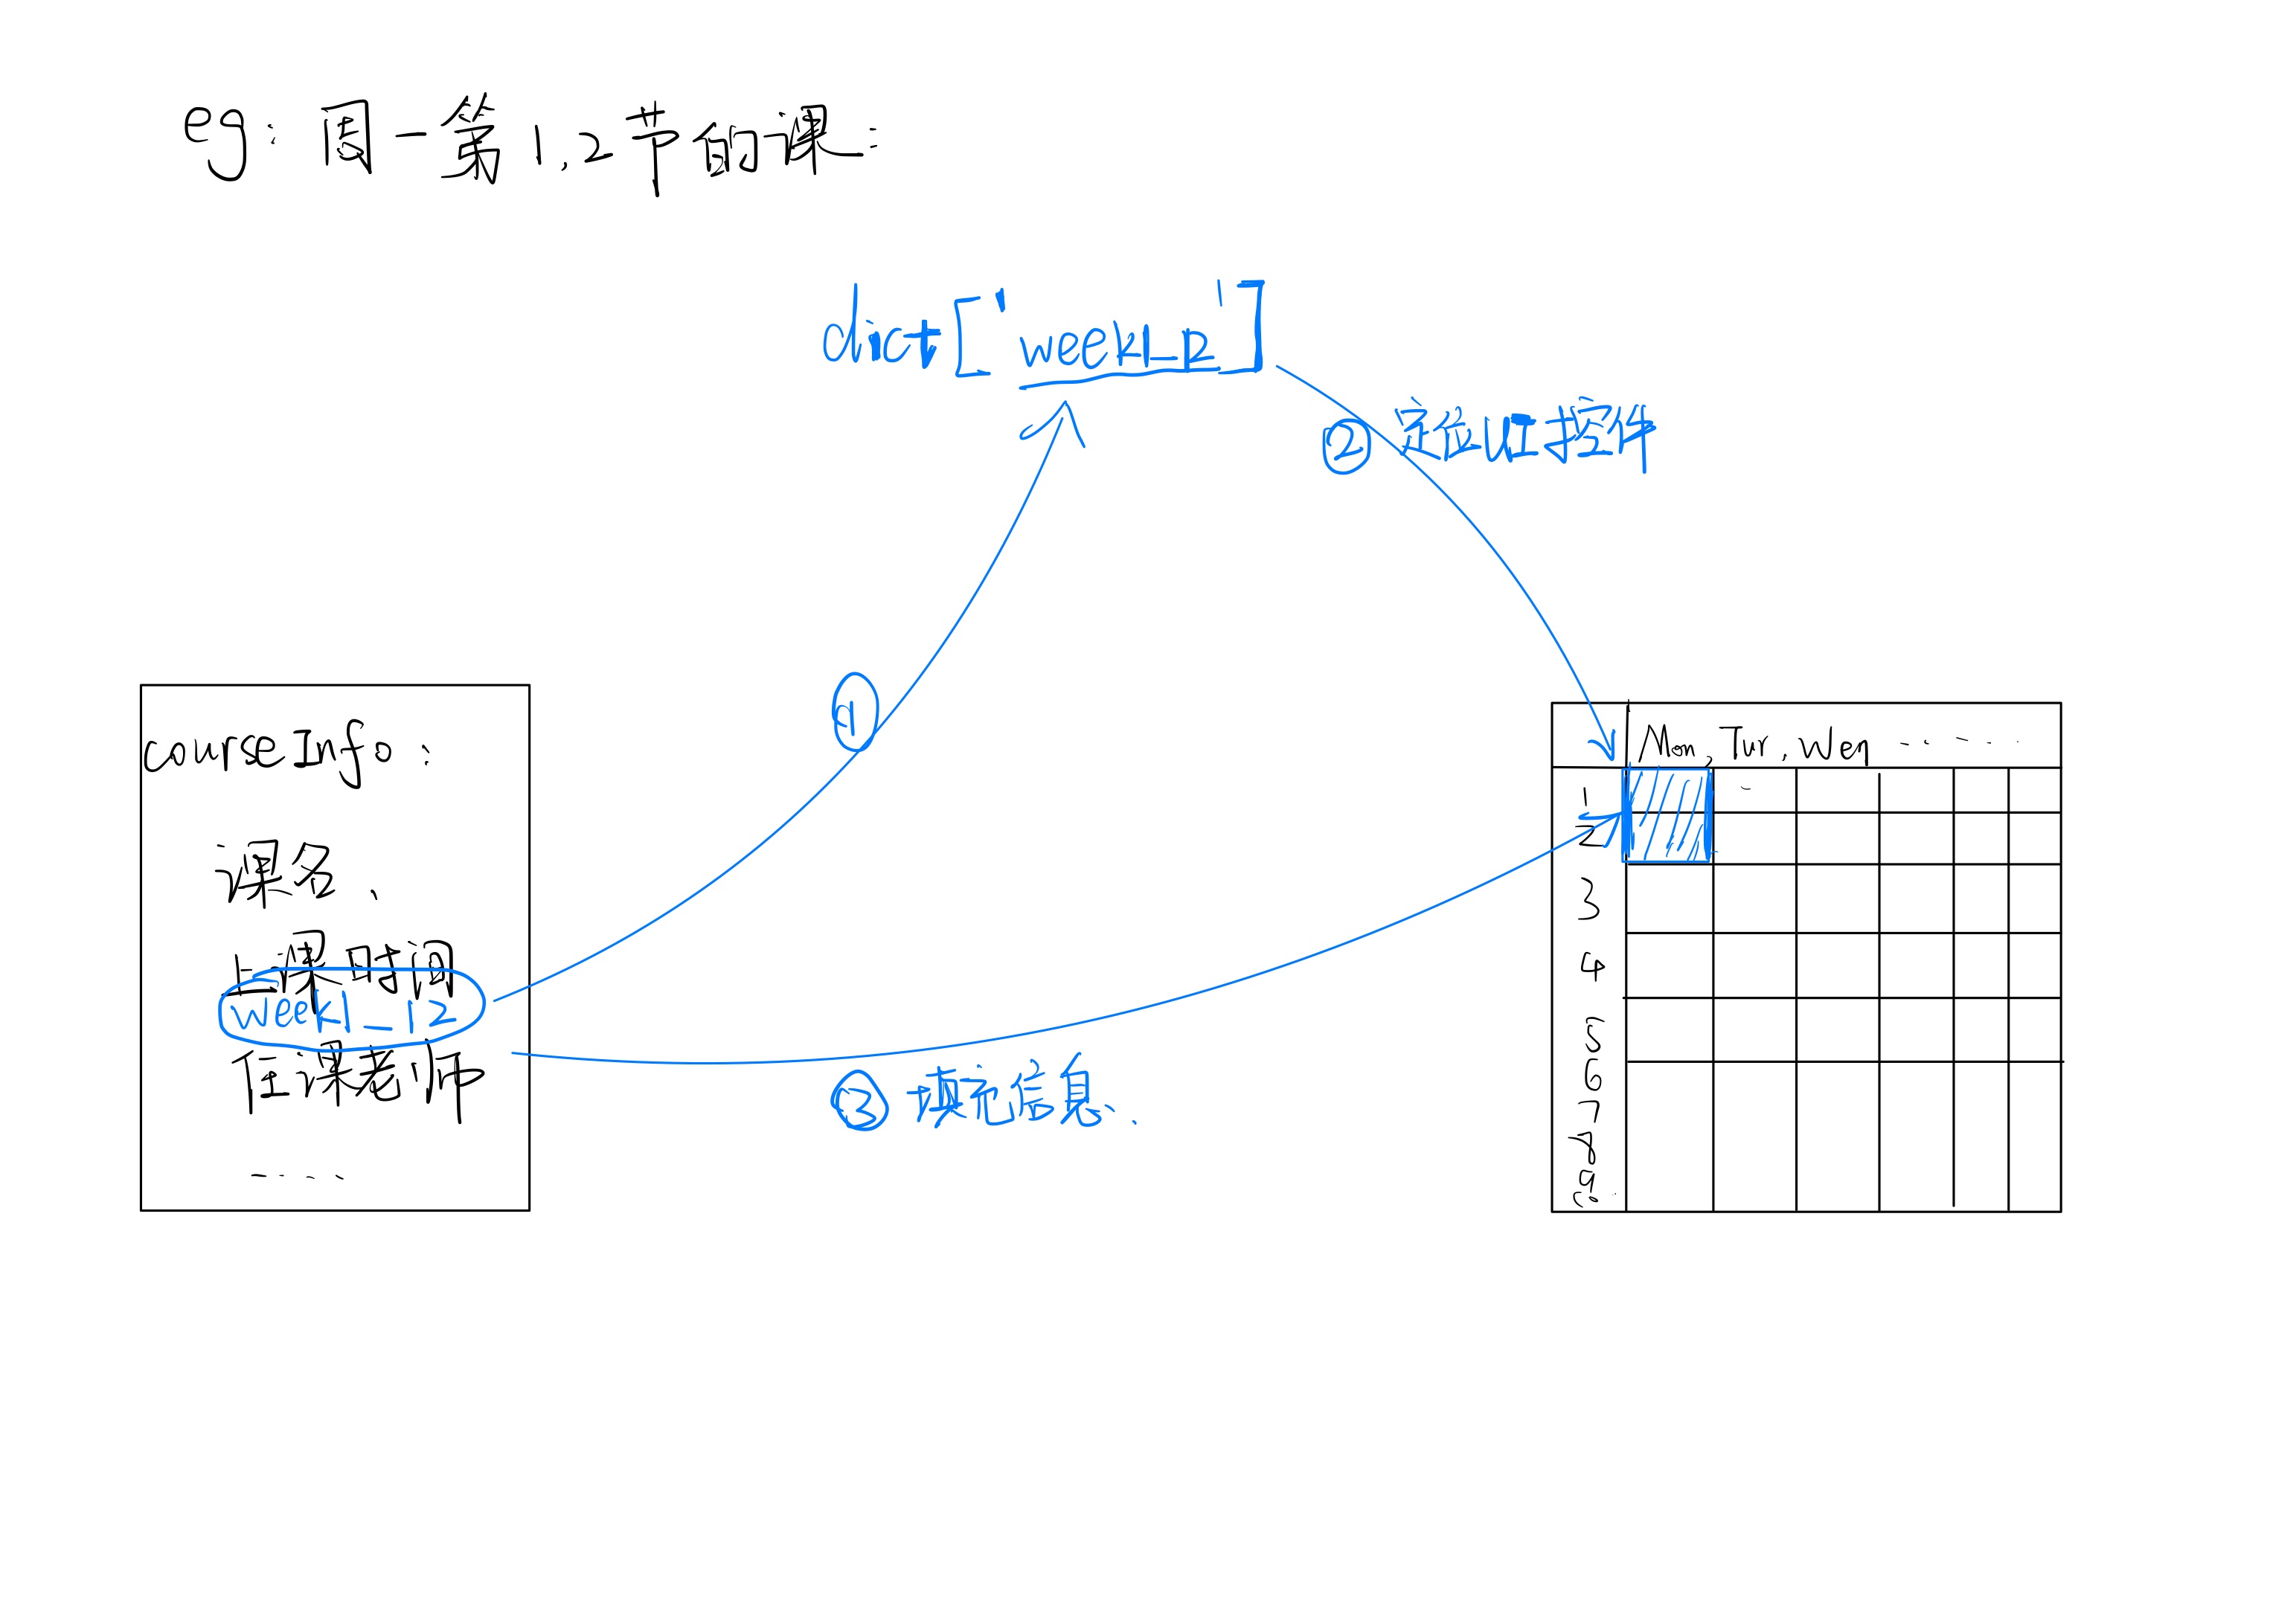 eg: 周一第1,2节的课:
dict['week1_12']
② 定位UI控件
①
courseInfo:
课名、
上课时间
week1_12
任课老师
....
③ 填充信息、
Mon, Tur, Wen ....
1
2
3
4
5
6
7
8
9